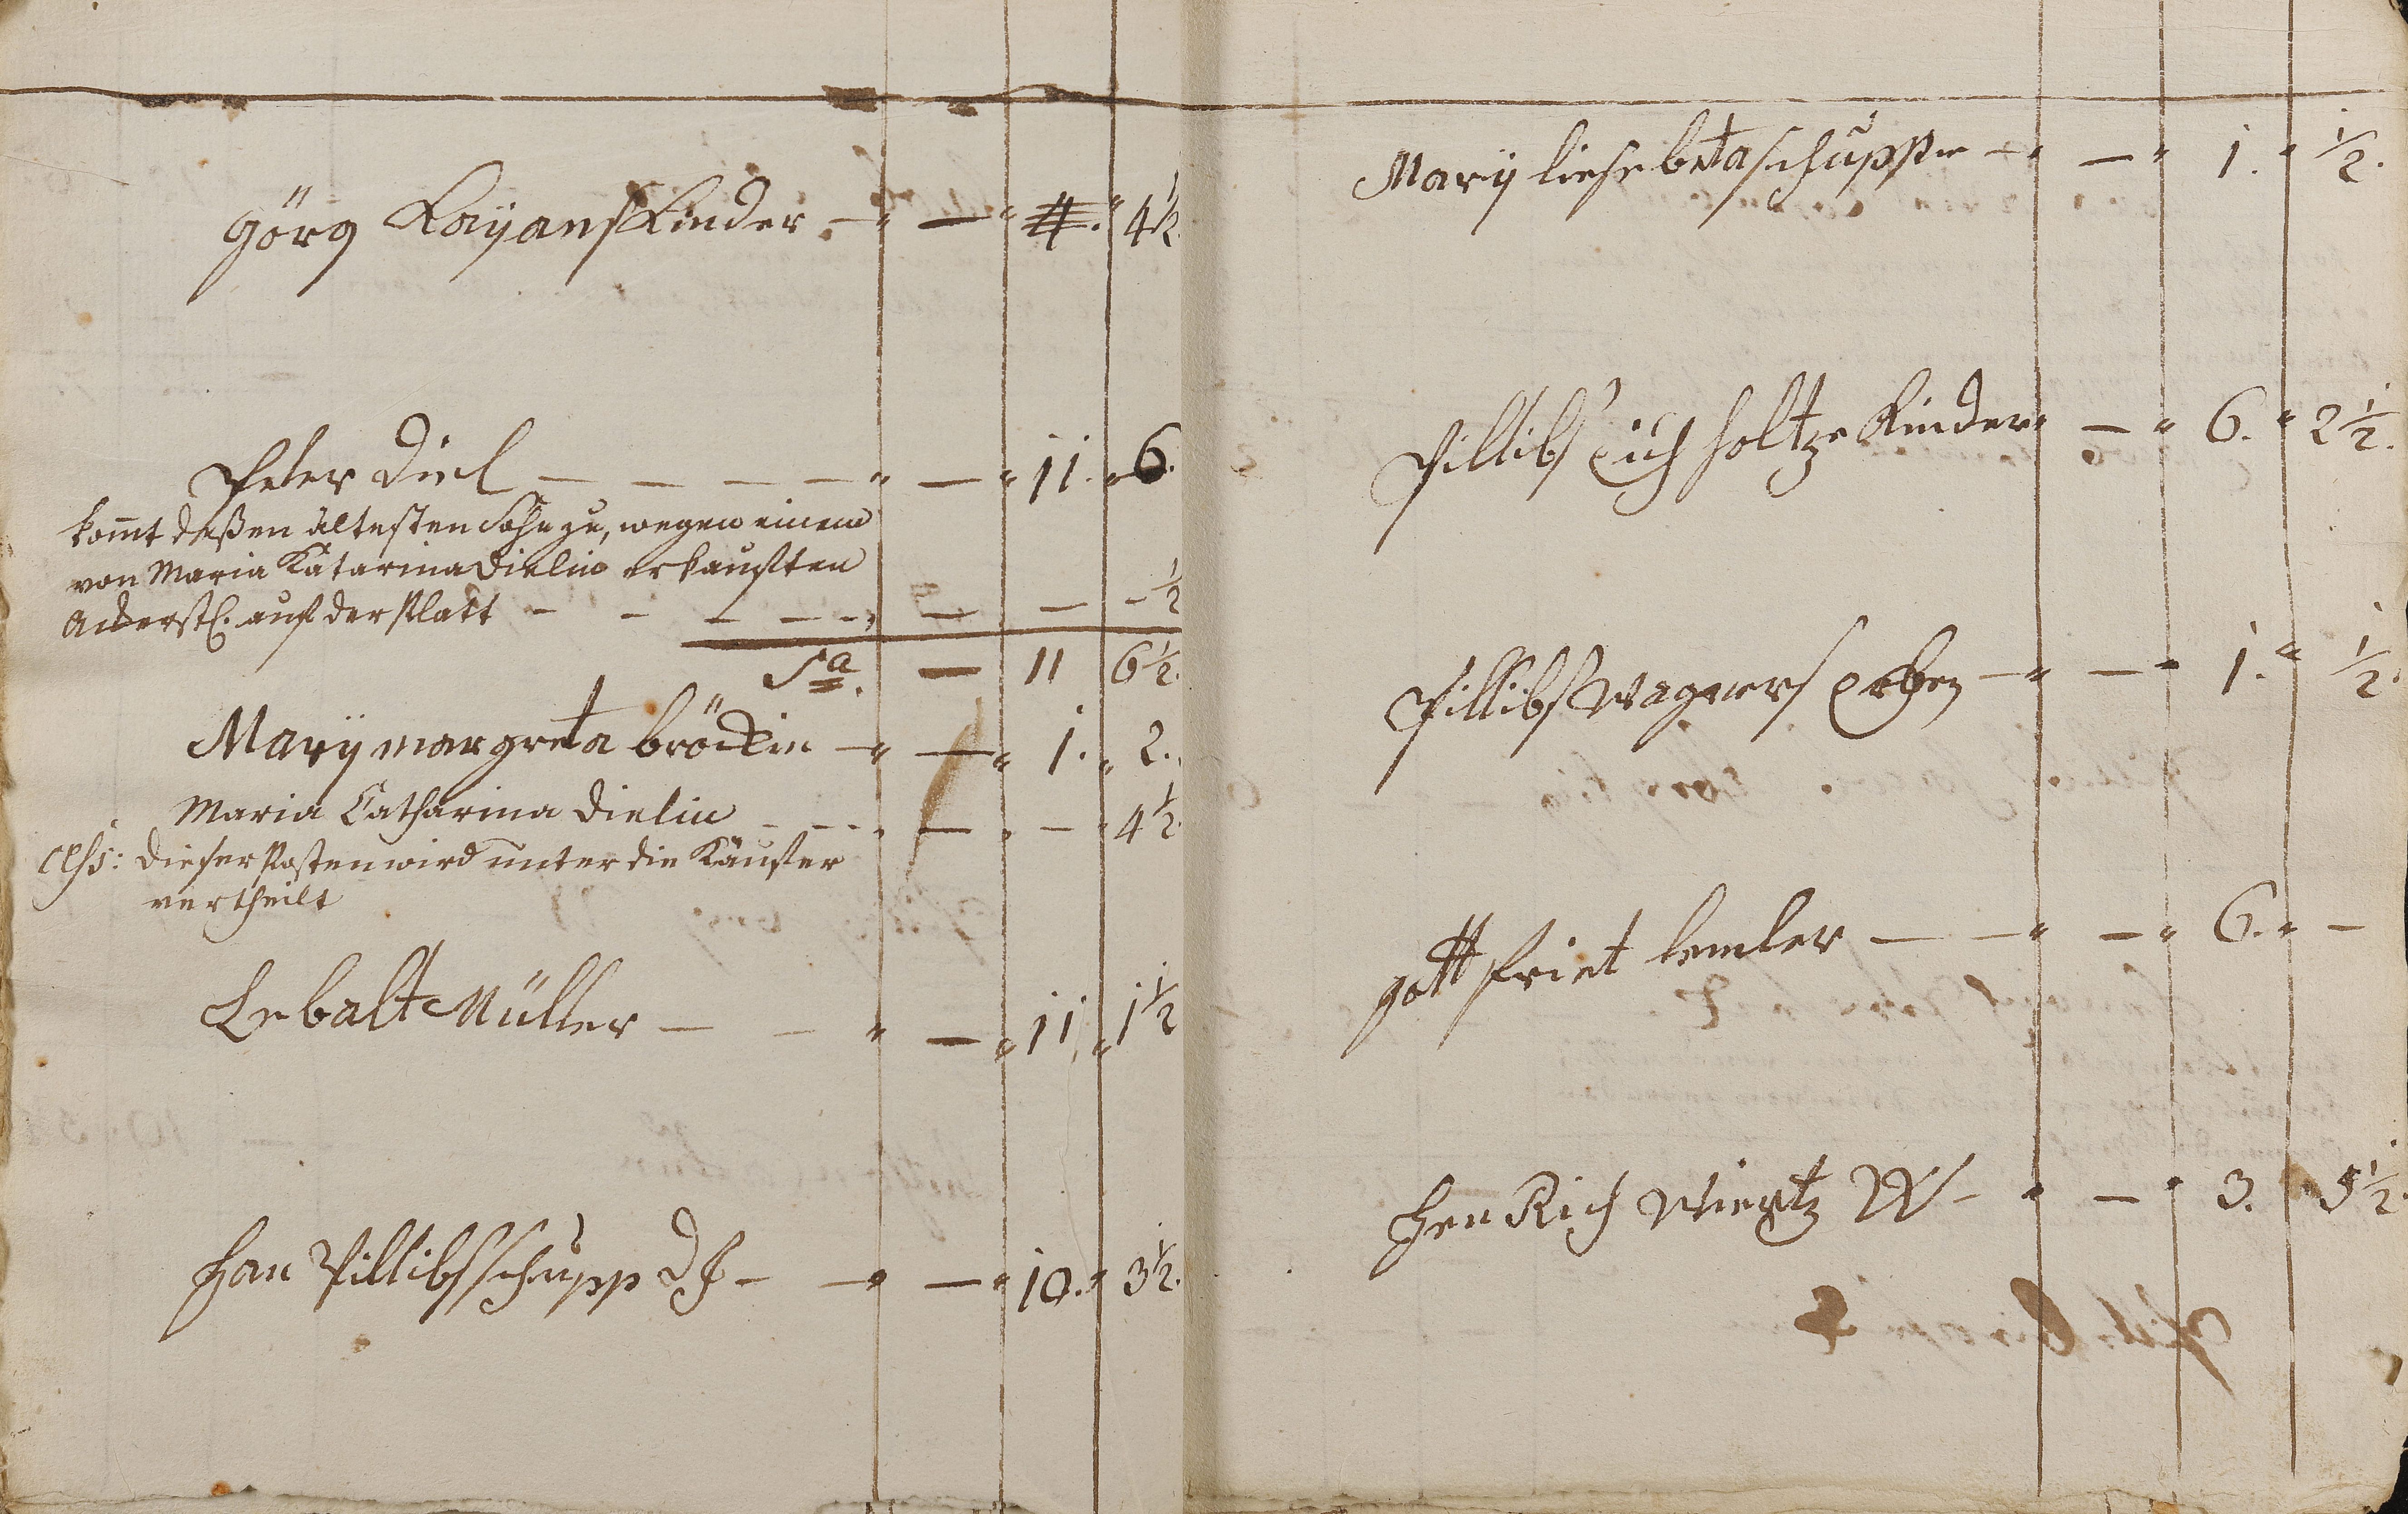 Görg Kaÿans Kinder — — 4. 4½
Peter Diel — — — — — 11. 6.
kom̄t deßen ältesten Sohn zu, wegen einem
von Maria Katarina Dielin erkauften
Ackerstl. auf der Platt — — — — — — — ½
Sa. — 11 6½.
Marÿ margreta bröckin — — 1. 2.
Maria Catharina Dielin — — — — — 4½.
dieser Posten wird unter die Käufer
vertheilt
Lebalt Müller — — — 11 1½
Han Pillibs schupp — — — 10. 3½.
Marÿ liesebeta schuppe — — 1. ½.
Pillibs Eich holtze Kinder — 6. 2½.
Pillibs Wagners Erben — — 1. ½.
gott friet lemler — — — 6. —
Hen Rich Wiertz W — — 3. 5½